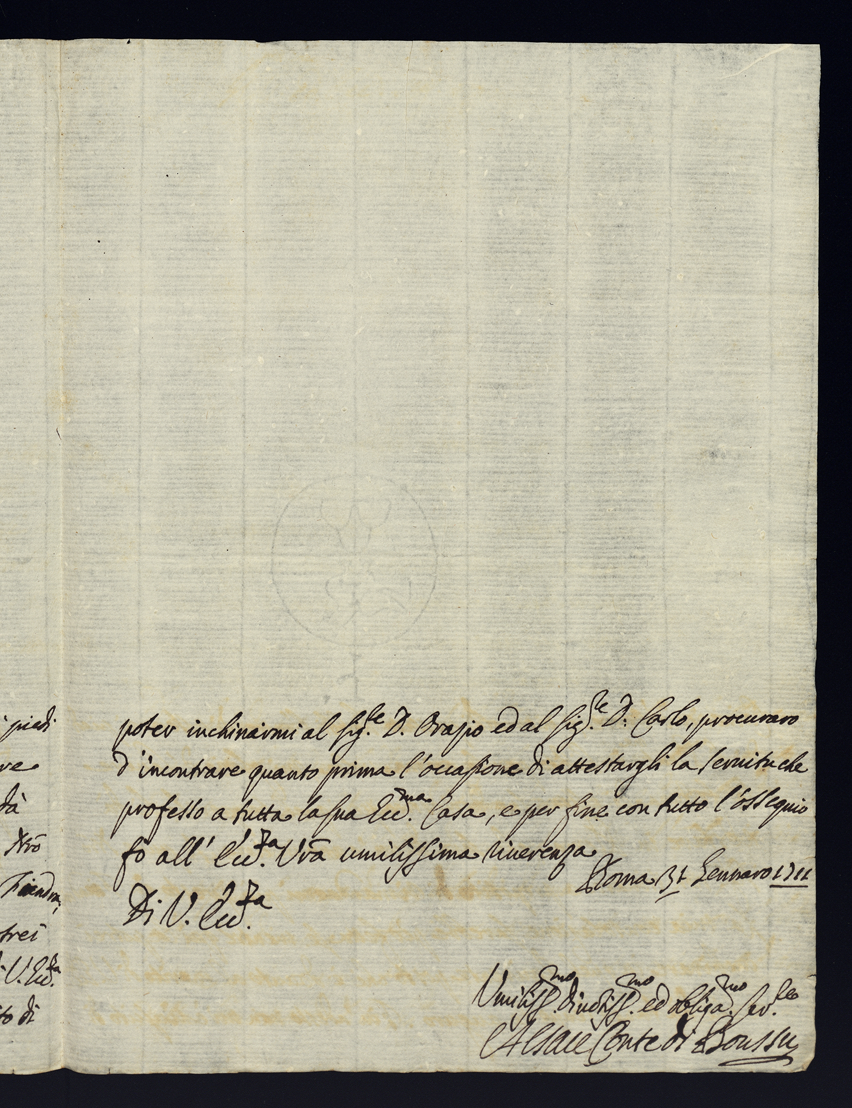 piedi
re
dà
Nrõ
Fiandra,
trei
V. Ecc.za
to di
poter inchinarmi al Sig.re D. Orazio ed al Sig.re D. Carlo, procuraro
d'incontrare quanto prima l'occasione di attestargli la servitu che
professo a tutta la sua Ecc.ma Casa, e per fine con tutto l'ossequio
fò all' Ecc.za Vrã umilissima riverenza
Roma 31 Gennaro 1711
Di V. Ecc.za
Umiliss.mo divotiss.mo ed obliga.mo Ser.re
Alsace Conte di Boussu